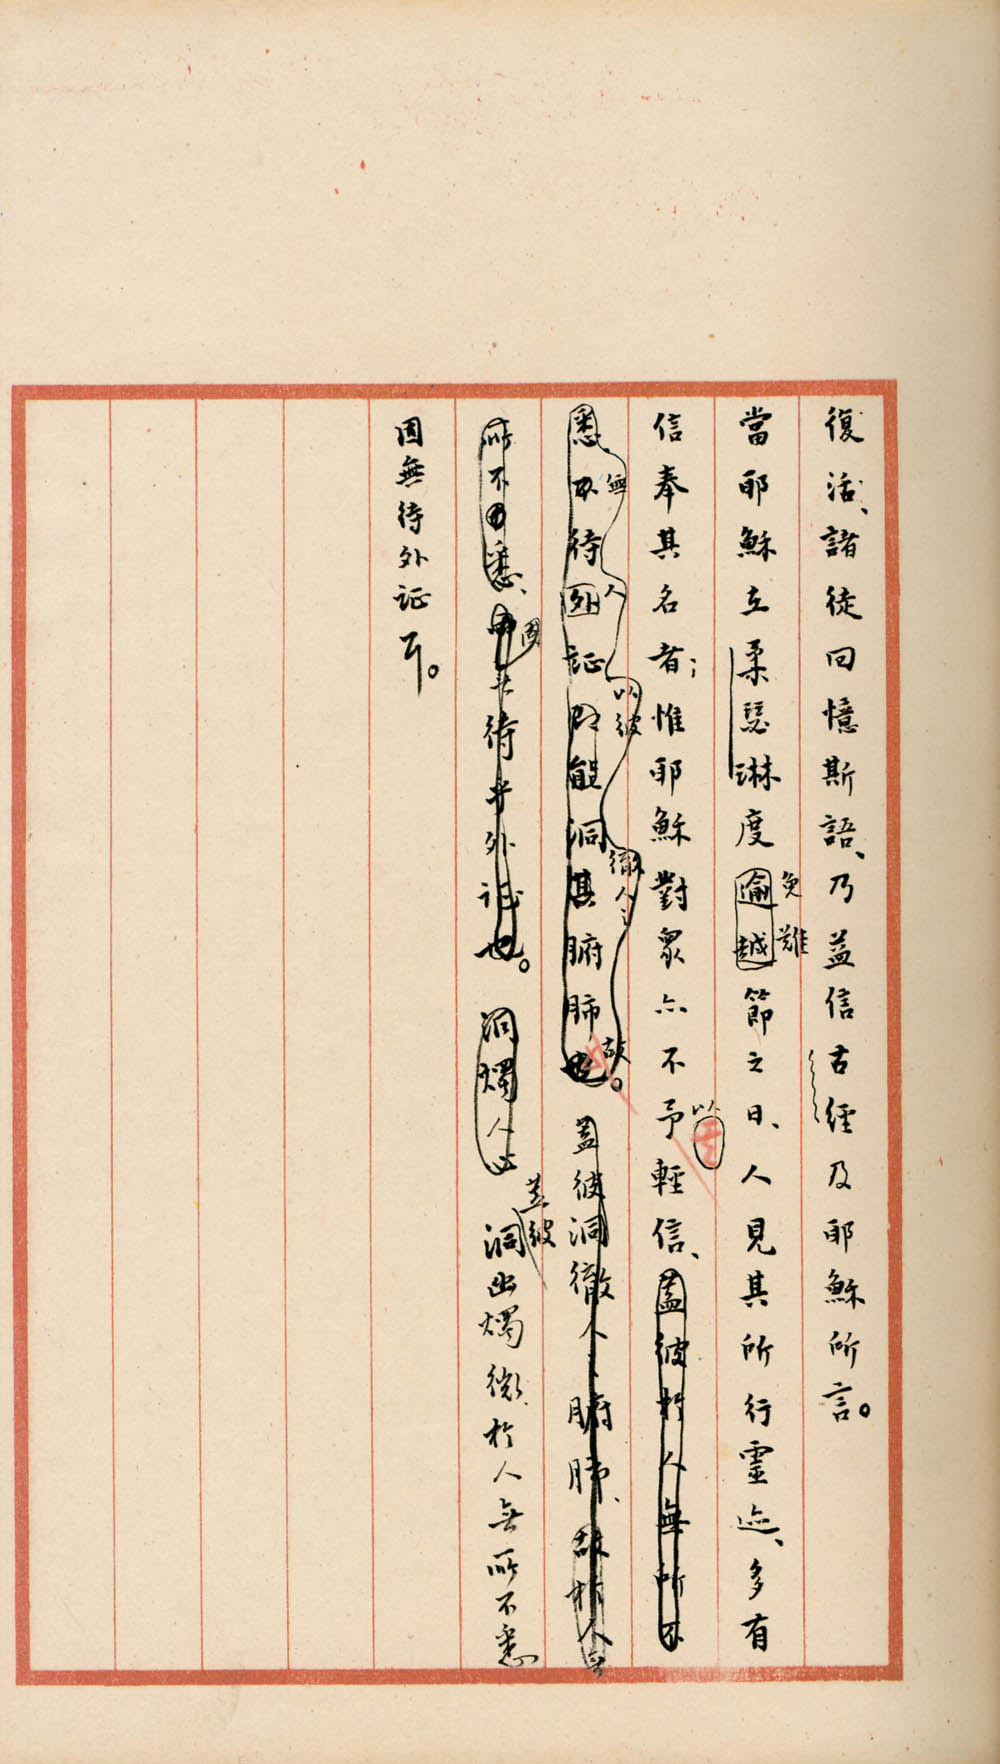 復活、諸徒回憶斯語、乃益信古經及耶穌所言。
當耶穌立柔瑟琳度逾越節之日、人見其所行靈迹、多有
免難
信奉其名者；惟耶穌對眾亦不予輕信、蓋彼於人無所不
以
悉不待外証即能洞其腑肺也 蓋彼洞徹人之腑肺、故於人無
無 人 以彼 徹人之 故。
所不悉、 待 外証也。 洞燭人 洞幽燭微、於人無所不悉
固 蓋彼
固無待外証耳。